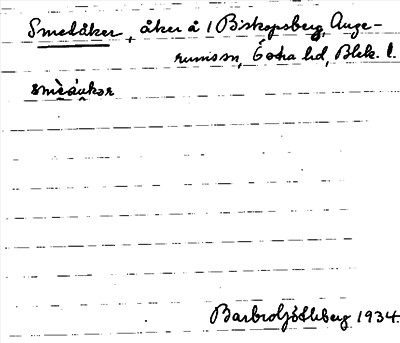 Smedåker, åker å 1 Biskopsberg, Auge-
rums sn, Östra hd, Blek. l.
smèsåkər
Barbro Götheberg 1934.